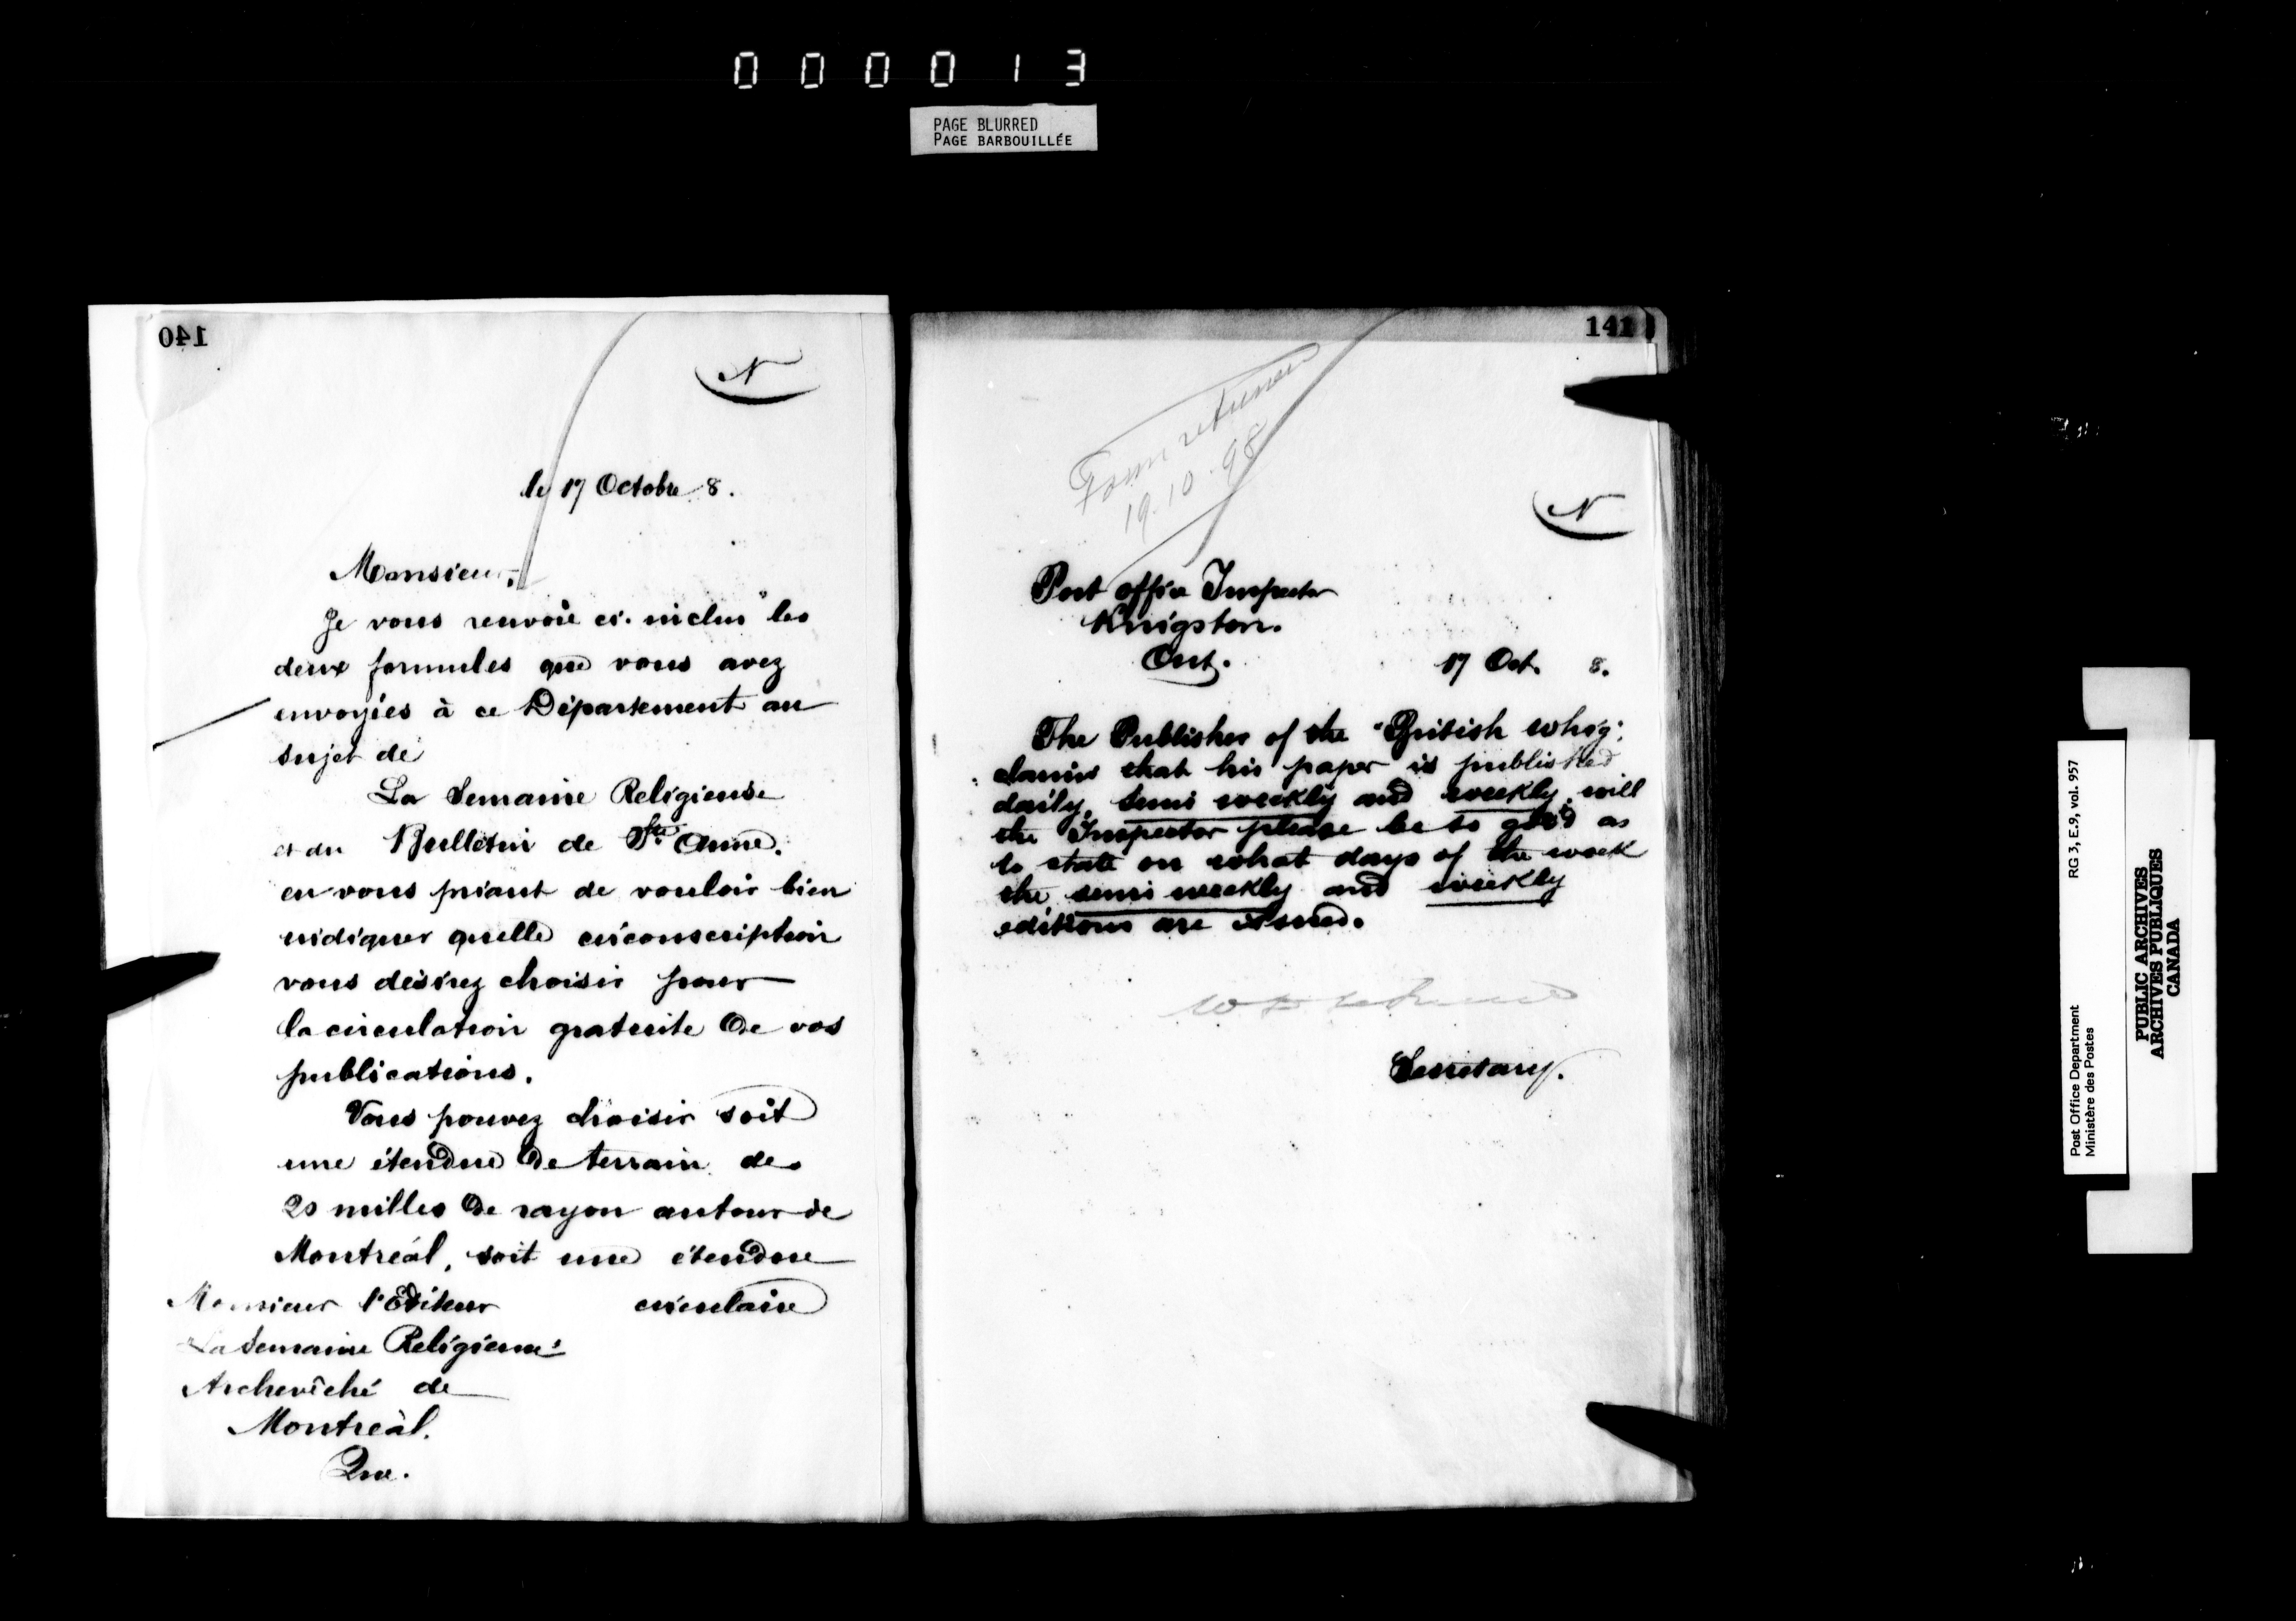 000013
PAGE BLURRED
PAGE BARBOUILLÉE
140
N
le 17 Octobre 8.
Monsieur,
Je vous renvoie ci-inclus les
deux formules que vous avez
envoyées à ce Département au
sujet de
La Semaine Religieuse
et du Bulletin de Ste Anne.
en vous priant de vouloir bien
indiquer quelle circonscription
vous désirez choisir pour
la circulation gratuite de vos
publications.
Vous pouvez choisir soit
une étendue de terrain de
20 milles de rayon autour de
Montréal, soit une étendue
circulaire
Monsieur l'Editeur
La Semaine Religieuse
Archevêché de
Montréal.
Que.
141
Form returned
19.10.98
N
Post office Inspector
Kingston.
Ont.
17 Oct. 8.
The Publisher of the "British Whig"
claims that his paper is published
daily, semi weekly and weekly. will
the Inspector please be so good as
to state on what days of the week
the semi weekly and weekly
editions are issued.
Secretary.
Post Office Department
Ministère des Postes
RG 3, E.9, vol. 957
PUBLIC ARCHIVES
ARCHIVES PUBLIQUES
CANADA